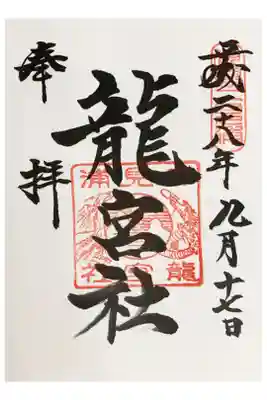 平成二十八年九月十七日
龍宮社
奉拝